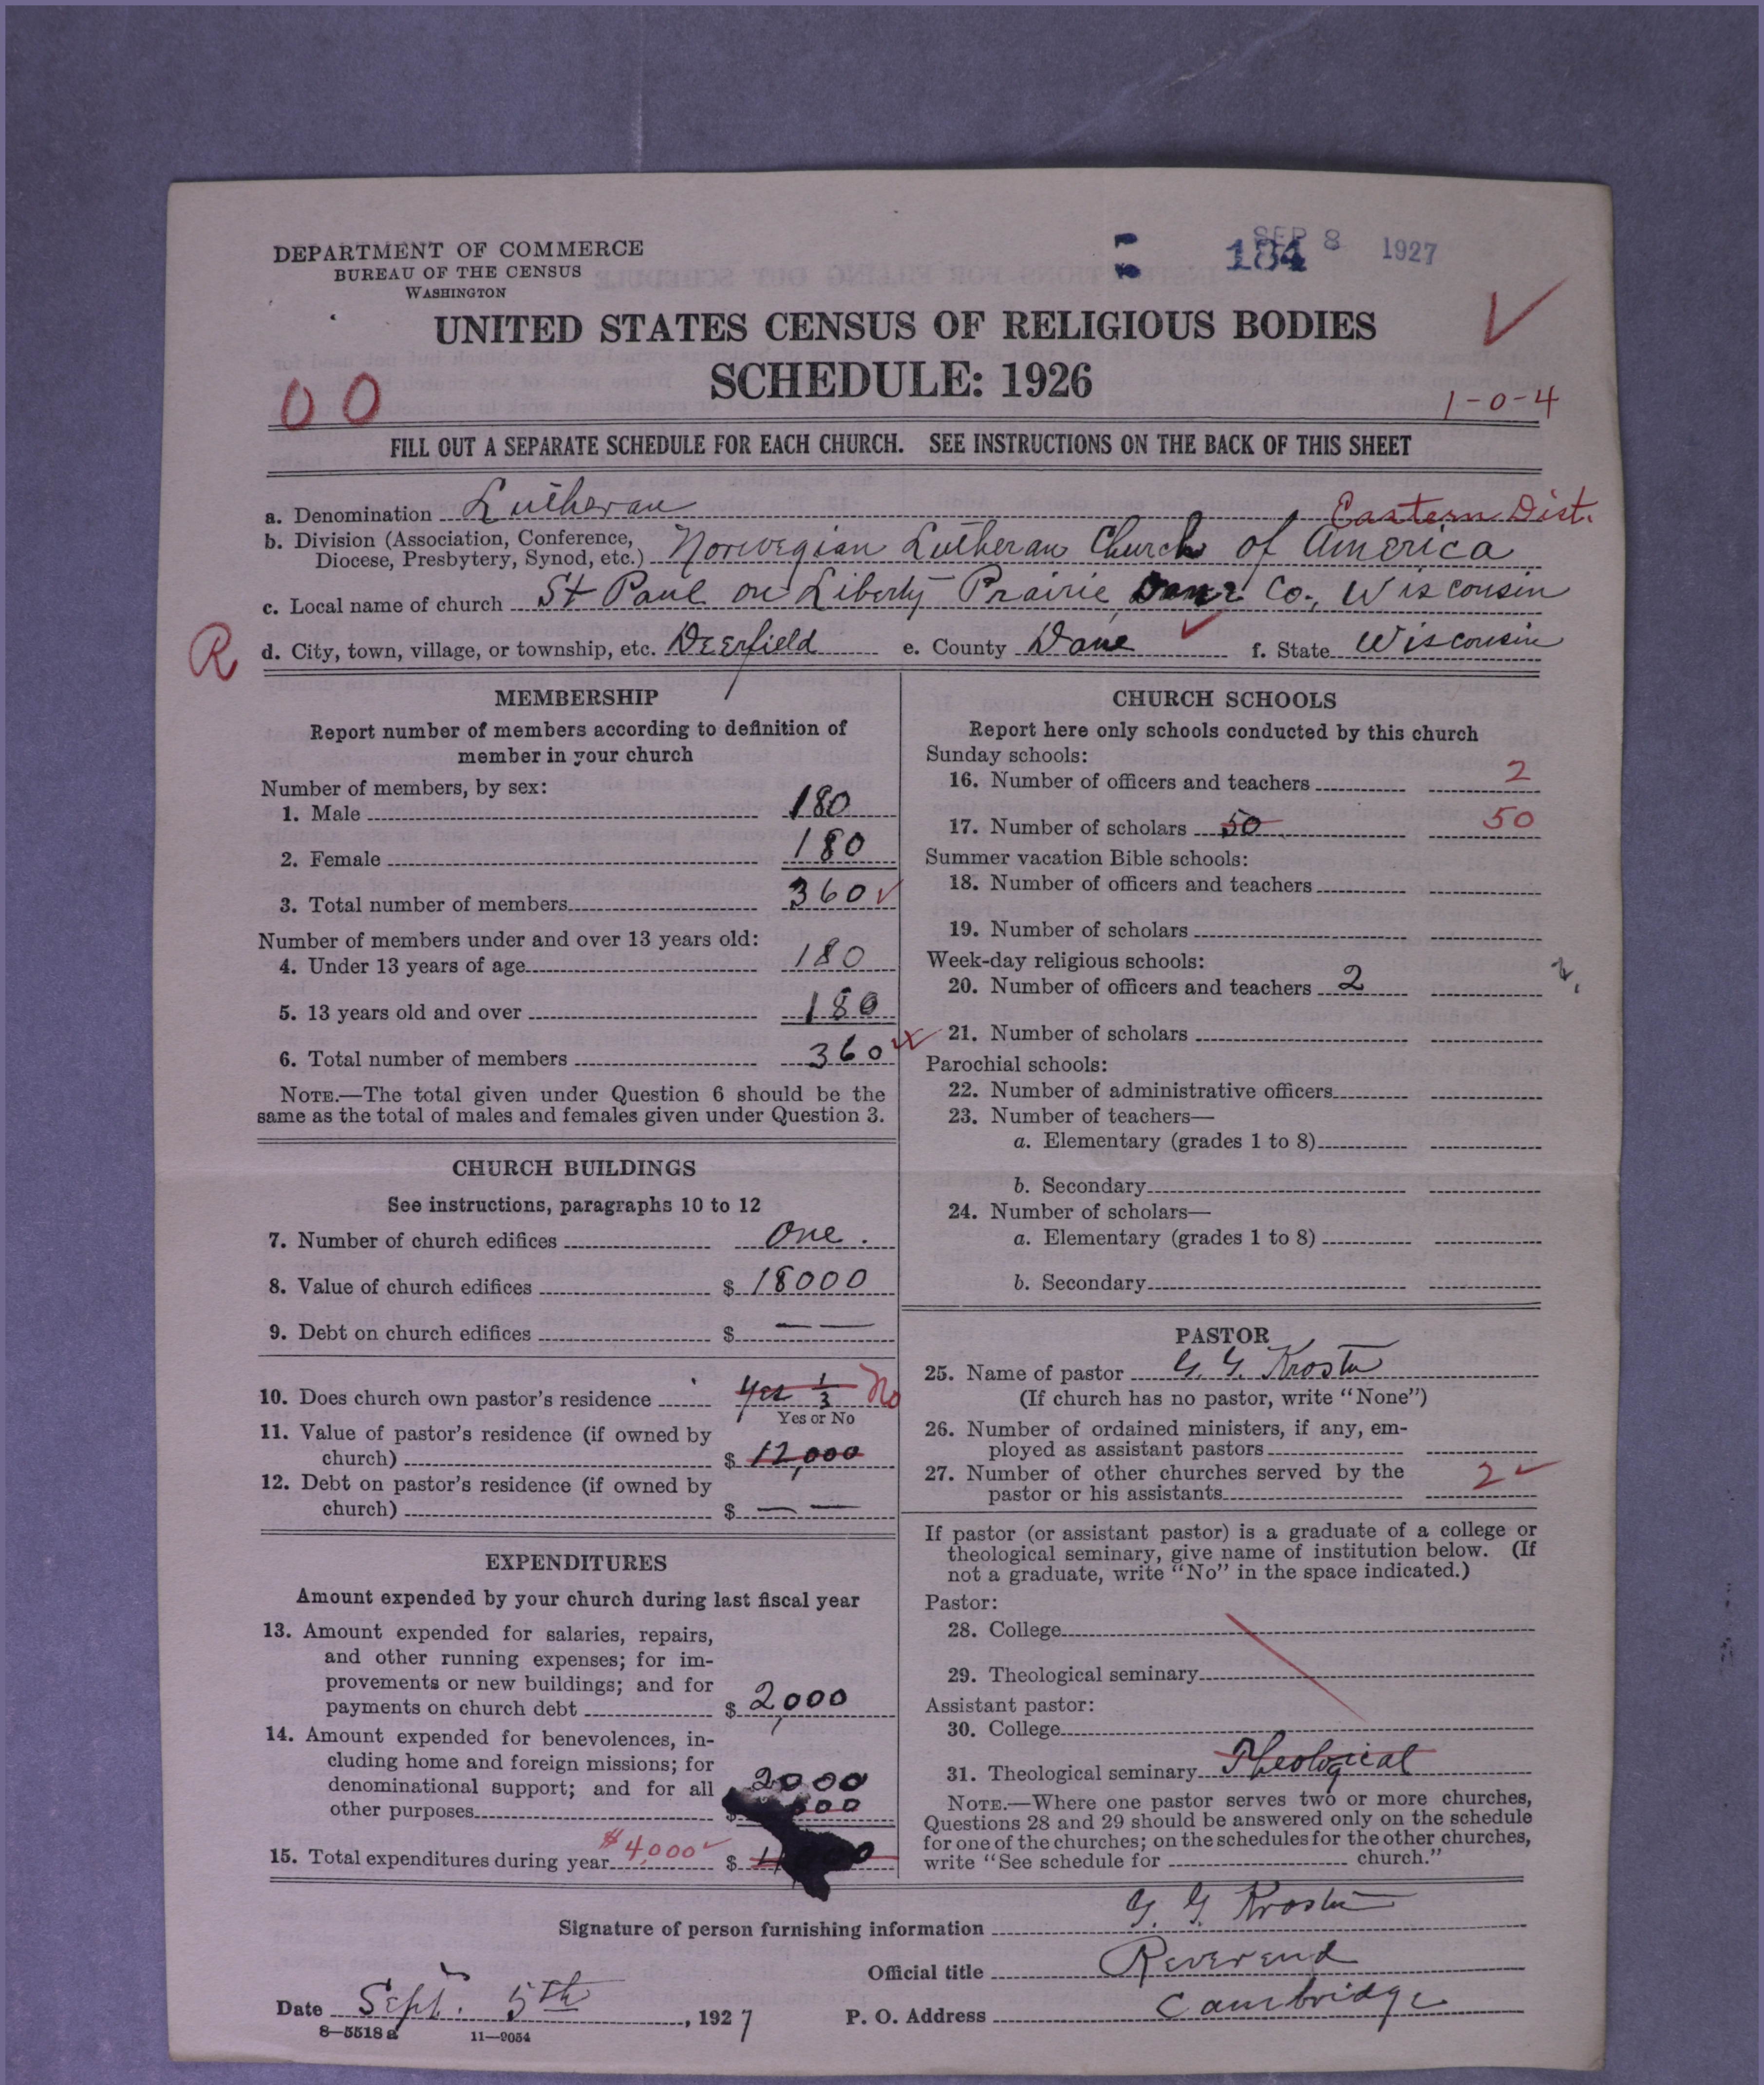 DEPARTMENT OF COMMERCE
BUREAU OF THE CENSUS
WASHINGTON
184 SEP 8 1927
UNITED STATES CENSUS OF RELIGIOUS BODIES
SCHEDULE: 1926
00
1-0-4
FILL OUT A SEPARATE SCHEDULE FOR EACH CHURCH. SEE INSTRUCTIONS ON THE BACK OF THIS SHEET
a. Denomination Lutheran Eastern Dist.
b. Division (Association, Conference,
Diocese, Presbytery, Synod, etc.) Norwegian Lutheran Church of America
c. Local name of church St Paul on Liberty Prairie, Dane Co., Wisconsin
R
d. City, town, village, or township, etc. Deerfield e. County Dane f. State Wisconsin
MEMBERSHIP
Report number of members according to definition of
member in your church
Number of members, by sex:
1. Male 180
2. Female 180
3. Total number of members 360
Number of members under and over 13 years old:
4. Under 13 years of age 180
5. 13 years old and over 180
6. Total number of members 360
NOTE.—The total given under Question 6 should be the
same as the total of males and females given under Question 3.
CHURCH BUILDINGS
See instructions, paragraphs 10 to 12
7. Number of church edifices One.
8. Value of church edifices $ 18000
9. Debt on church edifices $ — —
10. Does church own pastor's residence Yes 1/3 No
Yes or No
11. Value of pastor's residence (if owned by
church) $ 12,000
12. Debt on pastor's residence (if owned by
church) $ — —
EXPENDITURES
Amount expended by your church during last fiscal year
13. Amount expended for salaries, repairs,
and other running expenses; for im-
provements or new buildings; and for
payments on church debt $ 2,000
14. Amount expended for benevolences, in-
cluding home and foreign missions; for
denominational support; and for all 2000
other purposes $
15. Total expenditures during year $4,000 $
CHURCH SCHOOLS
Report here only schools conducted by this church
Sunday schools:
16. Number of officers and teachers 2
17. Number of scholars 50 50
Summer vacation Bible schools:
18. Number of officers and teachers
19. Number of scholars
Week-day religious schools:
20. Number of officers and teachers 2
21. Number of scholars
Parochial schools:
22. Number of administrative officers
23. Number of teachers—
a. Elementary (grades 1 to 8)
b. Secondary
24. Number of scholars—
a. Elementary (grades 1 to 8)
b. Secondary
PASTOR
25. Name of pastor G. G. Krostu
(If church has no pastor, write "None")
26. Number of ordained ministers, if any, em-
ployed as assistant pastors
27. Number of other churches served by the
pastor or his assistants 2
If pastor (or assistant pastor) is a graduate of a college or
theological seminary, give name of institution below. (If
not a graduate, write "No" in the space indicated.)
Pastor:
28. College
29. Theological seminary
Assistant pastor:
30. College
31. Theological seminary Theological
NOTE.—Where one pastor serves two or more churches,
Questions 28 and 29 should be answered only on the schedule
for one of the churches; on the schedules for the other churches,
write "See schedule for church."
Signature of person furnishing information G. G. Krostu
Official title Reverend
Date Sept. 5th, 1927 P. O. Address Cambridge
8—5518 a 11—9054